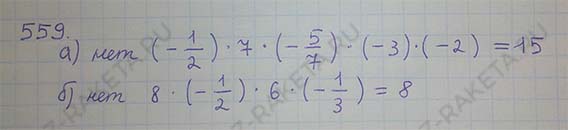 559.
а) нет (-1/2) · 7 · (-5/7) · (-3) · (-2) = 15
б) нет 8 · (-1/2) · 6 · (-1/3) = 8